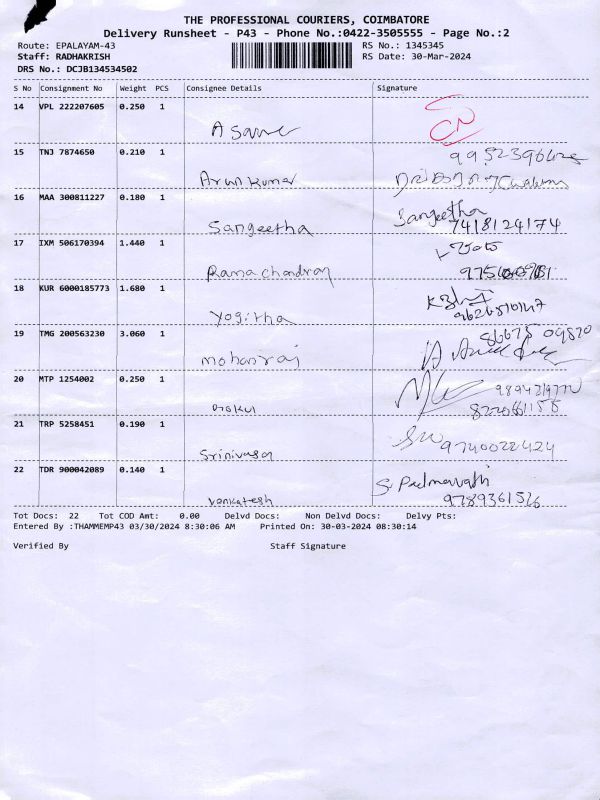 THE PROFESSIONAL COURIERS, COIMBATORE
Delivery Runsheet - P43 - Phone No.:0422-3505555 - Page No.:2
Route: EPALAYAM-43 RS No.: 1345345
Staff: RADHAKRISH RS Date: 30-Mar-2024
DRS No.: DCJB134534502
S No Consignment No Weight PCS Consignee Details Signature
14 VPL 222207605 0.250 1
15 TNJ 7874650 0.210 1
Arun Kumar
16 MAA 300811227 0.180 1 Sangeetha
Sangeetha 7418124174
17 IXM 506170394 1.440 1
Ramachandran
18 KUR 6000185773 1.680 1
Yogitha
19 TMG 200563230 3.060 1 86675 09870
mohanraj
20 MTP 1254002 0.250 1
21 TRP 5258451 0.190 1
Srinivasan 9740022424
22 TDR 900042089 0.140 1 S. Padmavathi
Venkatesh
Tot Docs: 22 Tot COD Amt: 0.00 Delvd Docs: Non Delvd Docs: Delvy Pts:
Entered By :THAMMEMP43 03/30/2024 8:30:06 AM Printed On: 30-03-2024 08:30:14
Verified By Staff Signature